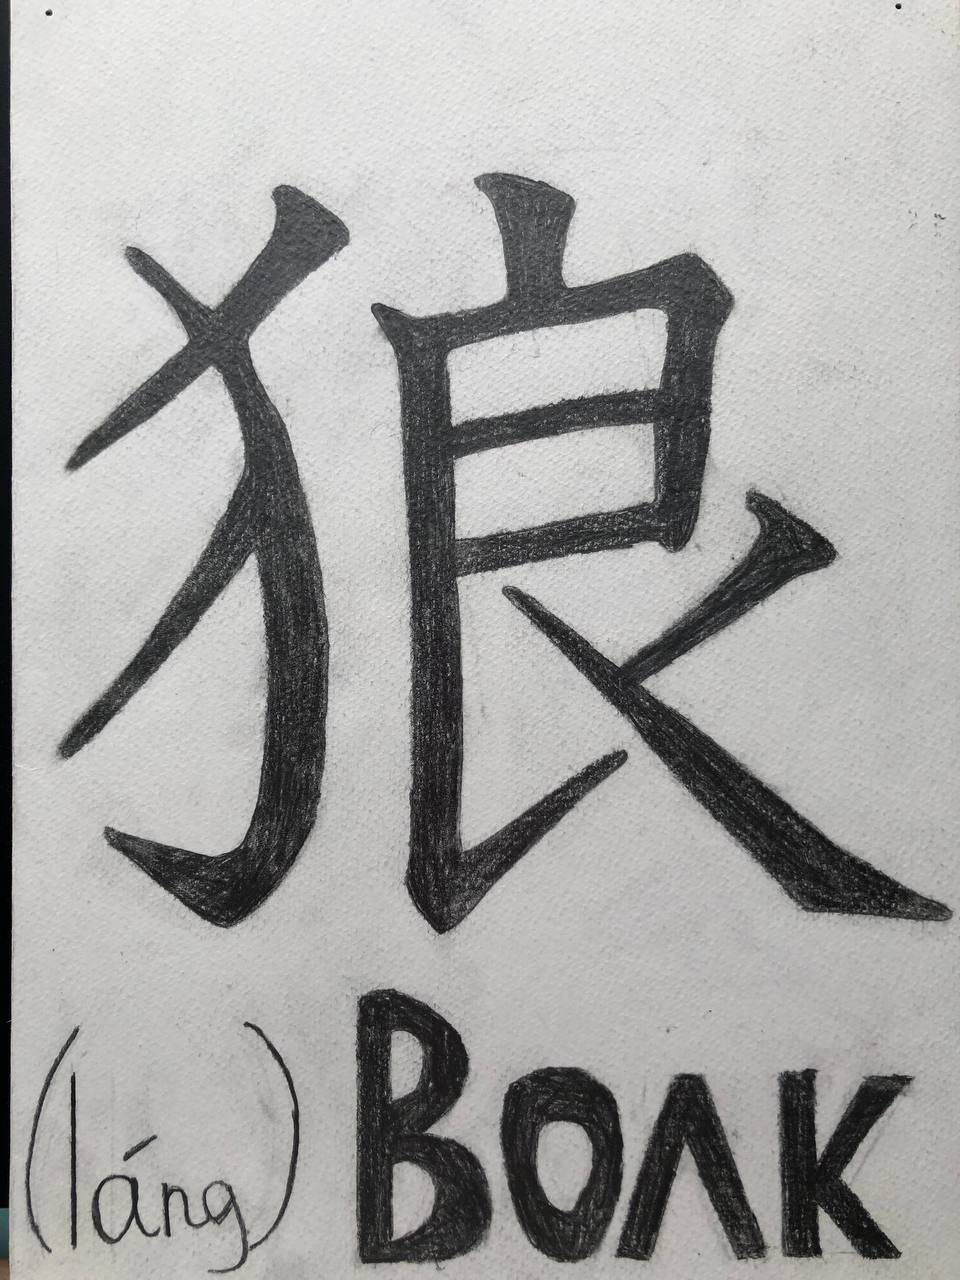 狼
(láng) Волк